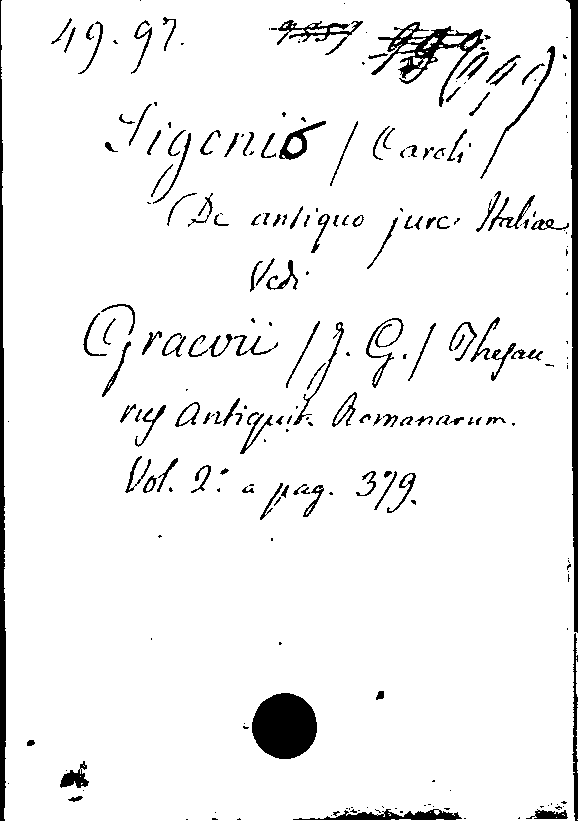 49.97.
Sigonio / Caroli /
(De antiquo jure Italiae
Vedi
Graevii / J. G. / Thesau-
rus Antiquit. Romanarum.
Vol. 2.º a pag. 379.